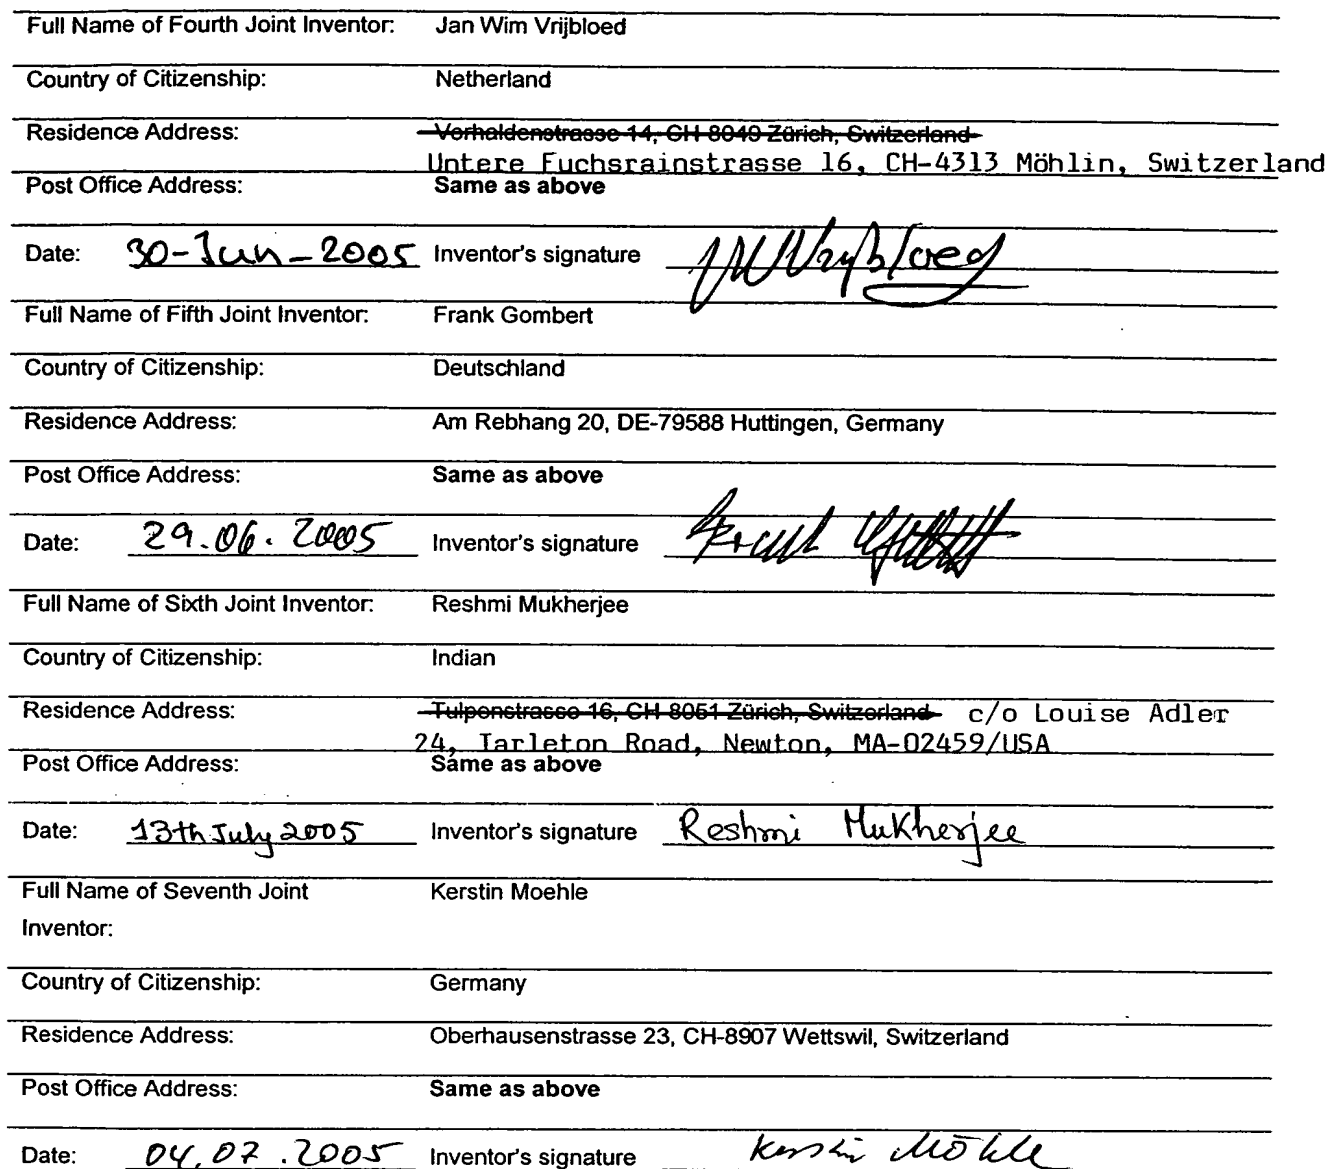 Full Name of Fourth Joint Inventor: Jan Wim Vrijbloed
Country of Citizenship: Netherland
Residence Address: Vorhaldenstrasse 14, CH-8049 Zürich, Switzerland
Untere Fuchsrainstrasse 16, CH-4313 Möhlin, Switzerland
Post Office Address: Same as above
Date: 30-Jun-2005 Inventor's signature JWVrijbloed
Full Name of Fifth Joint Inventor: Frank Gombert
Country of Citizenship: Deutschland
Residence Address: Am Rebhang 20, DE-79588 Huttingen, Germany
Post Office Address: Same as above
Date: 29.06.2005 Inventor's signature Frank
Full Name of Sixth Joint Inventor: Reshmi Mukherjee
Country of Citizenship: Indian
Residence Address: Tulpenstrasse 16, CH-8051 Zürich, Switzerland c/o Louise Adler
24, Tarleton Road, Newton, MA-02459/USA
Post Office Address: Same as above
Date: 13th July 2005 Inventor's signature Reshmi Mukherjee
Full Name of Seventh Joint Kerstin Moehle
Inventor:
Country of Citizenship: Germany
Residence Address: Oberhausenstrasse 23, CH-8907 Wettswil, Switzerland
Post Office Address: Same as above
Date: 04.07.2005 Inventor's signature Kerstin Möhle